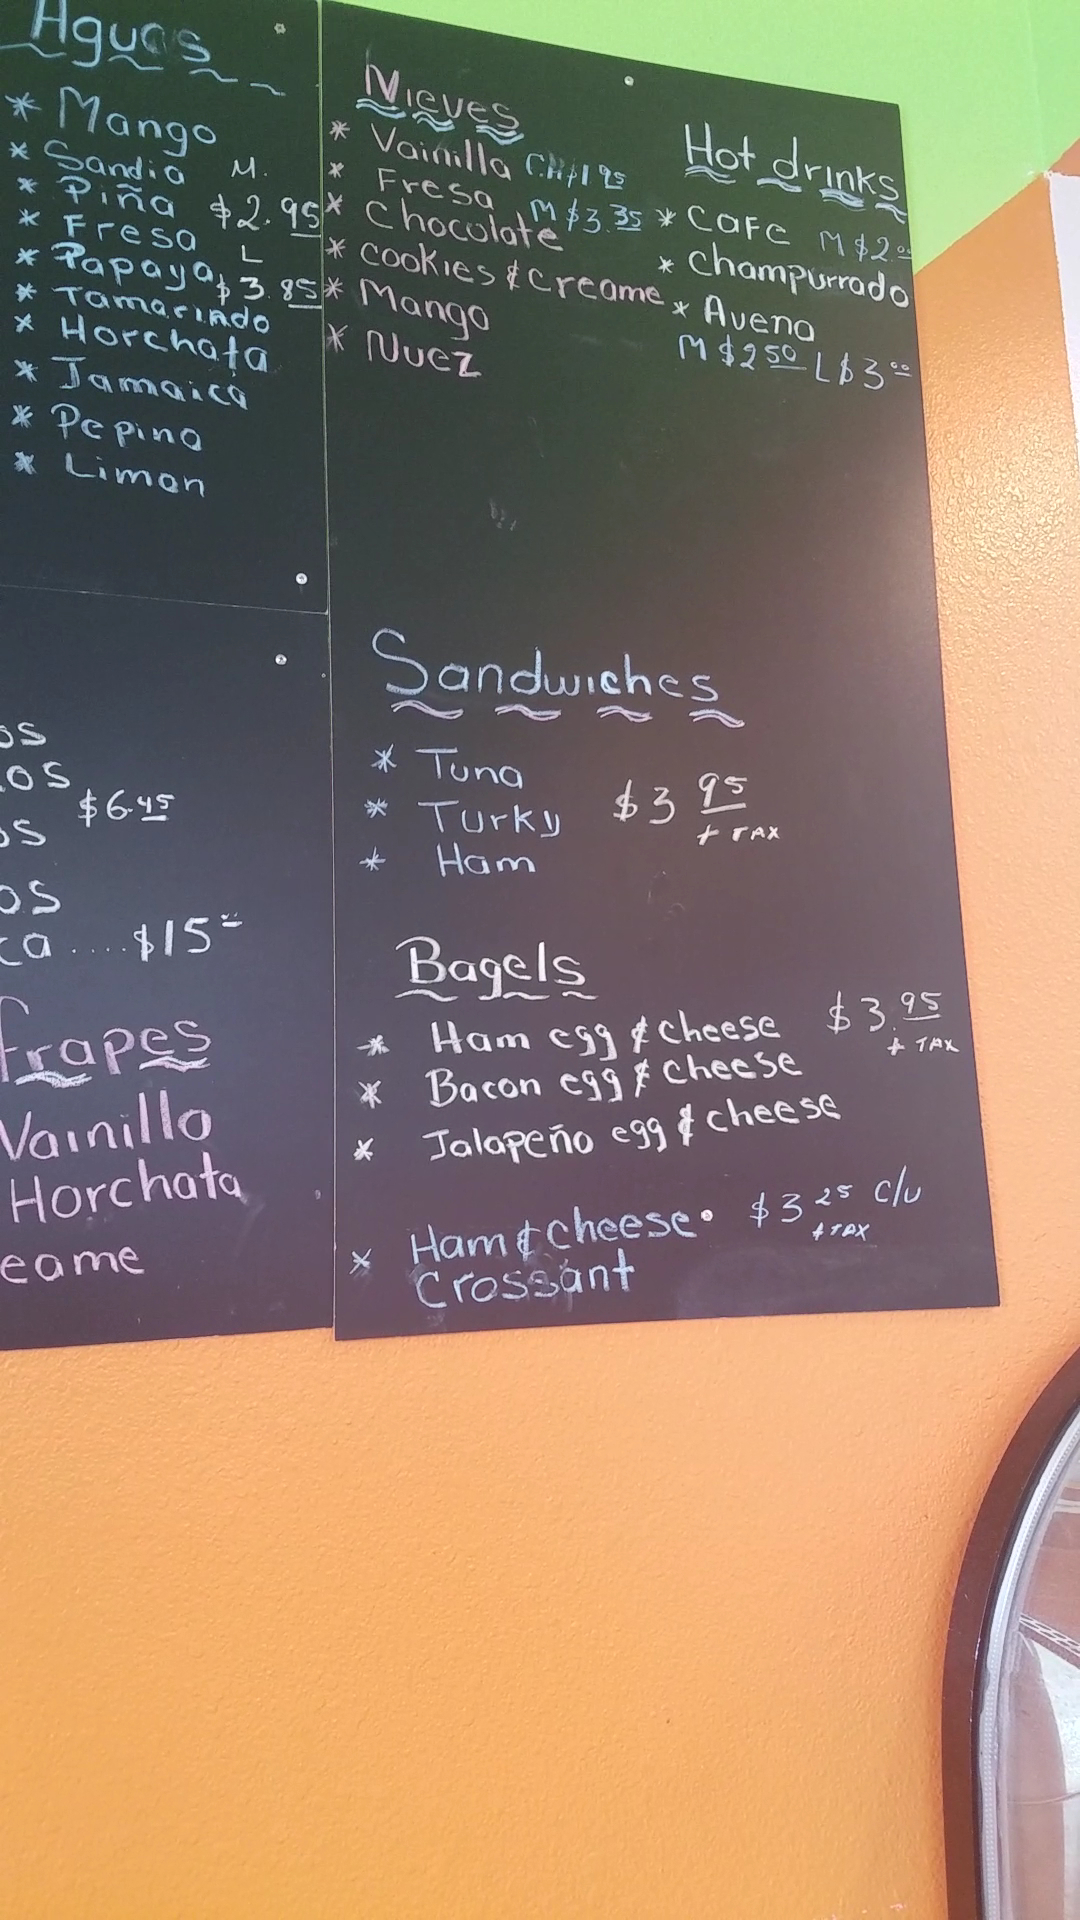 Aguas
* Mango
* Sandia M.
* Piña $2.95
* Fresa L
* Papaya $3.85
* Tamarindo
* Horchata
* Jamaica
* Pepino
* Limon
Nieves
* Vainilla CH $1.95
* Fresa M $3.35
* Chocolate
* Cookies & Creame
* Mango
* Nuez
Hot drinks
* Cafe M $2.00
* Champurrado
* Avena
M $2.50 L $3.00
os
os
$6.45
os
os
ca....$15
Sandwiches
* Tuna
* Turky $3.95
+ TAX
* Ham
Bagels
* Ham egg & cheese $3.95
+ TAX
* Bacon egg & cheese
* Jalapeño egg & cheese
* Ham & cheese $3.25 c/u
+ TAX
Crossant
frapes
Vainilla
Horchata
eame